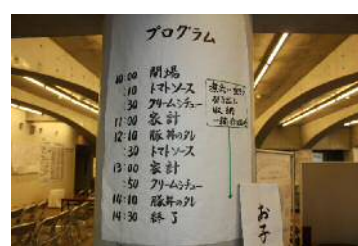 プログラム
10:00 開場
:10 トマトソース
:30 クリームシチュー
11:00 家計
12:10 豚丼のタレ
:30 トマトソース
13:00 家計
:50 クリームシチュー
14:10 豚丼のタレ
14:30 終了
収納
お子